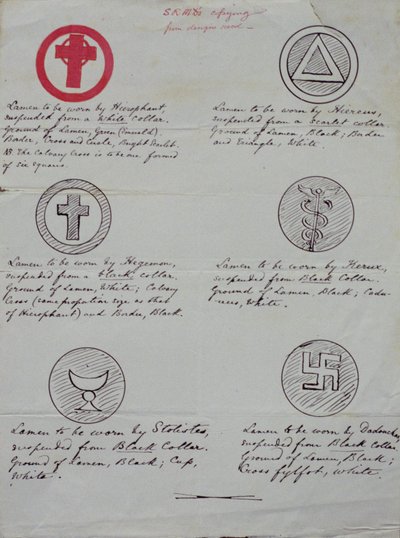 S.R.M.D's copying
from design used —
Lamen to be worn by Hierophant,
suspended from a White Collar.
Ground of Lamen, Green (Emerald).
Border, Cross and Circle, Bright Scarlet.
NB. The Calvary Cross is to be one formed
of six squares.
Lamen to be worn by Hiereus,
suspended from a scarlet collar
Ground of Lamen, Black; Border
and Triangle, White.
Lamen to be worn by Hegemon,
suspended from a black collar.
Ground of Lamen, White; Calvary
Cross (same proportion size as that
of Hierophant) and Border, Black.
Lamen to be worn by Kerux,
suspended from Black Collar.
Ground of Lamen, Black; Cadu-
ceus, White.
Lamen to be worn by Stolistes,
suspended from Black Collar.
Ground of Lamen, Black; Cup,
White.
Lamen to be worn by Dadouchos,
suspended from Black Collar.
Ground of Lamen, Black;
Cross fylfot, White.